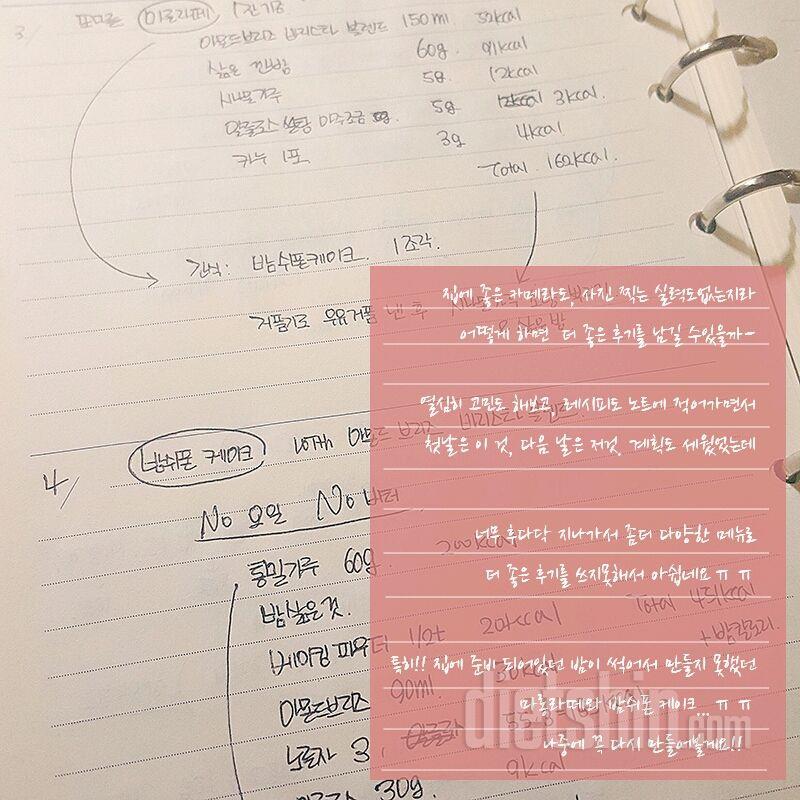 3/ 마롱라떼 1잔기준
아몬드브리즈 바리스타 블렌드 150ml 52kcal
삶은 깐밤 60g. 91kcal
시나몬가루 5g 12kcal
알룰로스 설탕 아주조금 5g 3kcal.
카누 1포 3g 4kcal
Total 162kcal.
간식: 밤쉬폰케이크. 1조각.
거품기로 우유거품 낸 후
4/ 밤쉬폰 케이크 with 아몬드 브리즈 바리스타 블렌드
No 오일 No 버터
통밀가루 60g. 200kcal
밤삶은것.
베이킹 파우더 1/2t 20kcal
아몬드브리즈 90ml. 30kcal
노른자 3.
30g. 9kcal
Total 451kcal
+ 밤칼로리.
집에 좋은 카메라도, 사진 찍는 실력도없는지라
어떻게 하면 더 좋은 후기를 남길 수있을까~
열심히 고민도 해보고, 레시피도 노트에 적어가면서
첫날은 이 것, 다음 날은 저것, 계획도 세웠었는데
너무 후다닥 지나가서 좀더 다양한 메뉴로
더 좋은 후기를 쓰지못해서 아쉽네요 ㅠ ㅠ
특히!! 집에 준비 되어있던 밤이 썩어서 만들지 못했던
마롱라떼와 밤쉬폰 케이크... ㅠ ㅠ
나중에 꼭 다시 만들어볼게요!!
dietshin.com